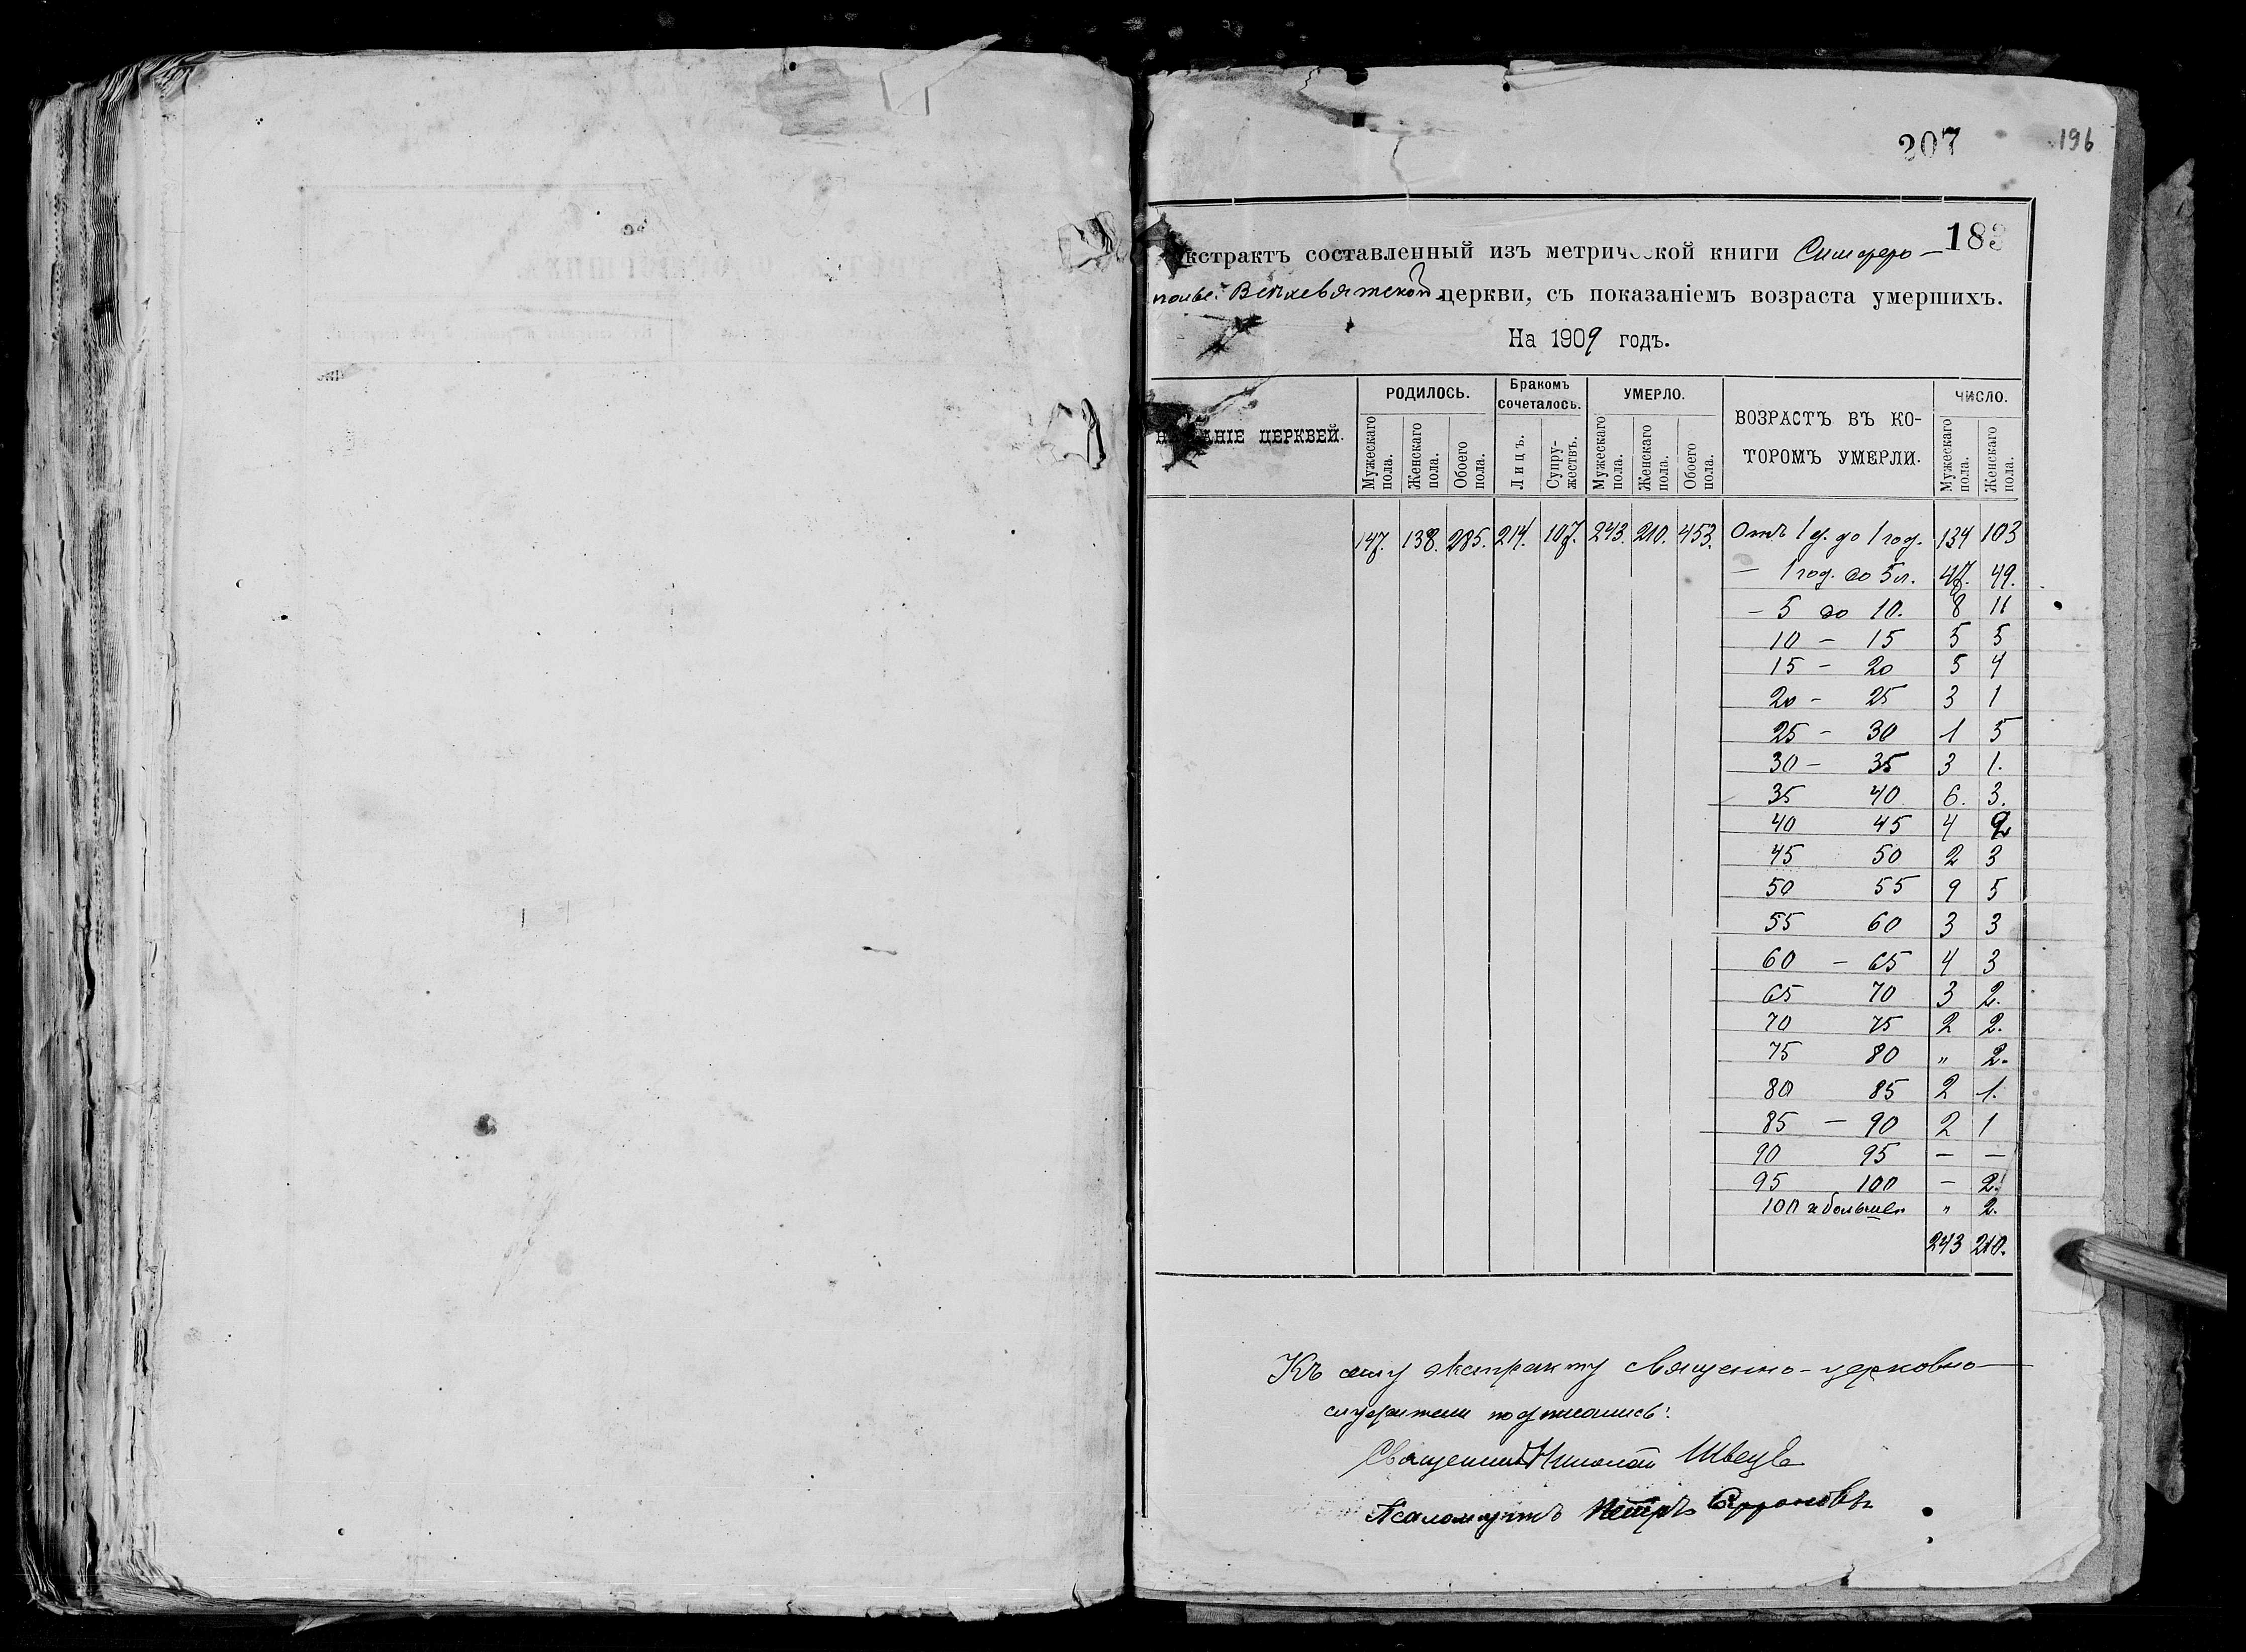 207
196
183
Экстрактъ составленный изъ метрической книги Симферо-
польс. Всѣхсвятской церкви, съ показаніемъ возраста умершихъ.
На 1909 годъ.
НАЗВАНІЕ ЦЕРКВЕЙ. РОДИЛОСЬ. Бракомъ сочеталось. УМЕРЛО. ВОЗРАСТЪ ВЪ КО- ТОРОМЪ УМЕРЛИ. ЧИСЛО.
Мужескаго пола. Женскаго пола. Обоего пола. Лицъ. Супру- жествъ. Мужескаго пола. Женскаго пола. Обоего пола. Мужескаго пола. Женскаго пола.
147. 138. 285. 214. 107. 243. 210. 453. Отъ 1 д. до 1 год. 134 103
— 1 год. до 5 л. 47. 49.
— 5 до 10. 8 11
10 — 15 5 5
15 — 20 5 4
20 — 25 3 1
25 — 30 1 5
30 — 35 3 1.
35 40 6. 3.
40 45 4 2
45 50 2 3
50 55 9 5
55 60 3 3
60 — 65 4 3
65 70 3 2.
70 75 2 2.
75 80 " 2.
80 85 2 1.
85 — 90 2 1
90 95 — —
95 100 — 2.
100 и больше " 2.
243 210.
Къ сему экстракту священно-церковно-
служители подписались:
Священникъ Николай Швецъ
Псаломщикъ Петръ